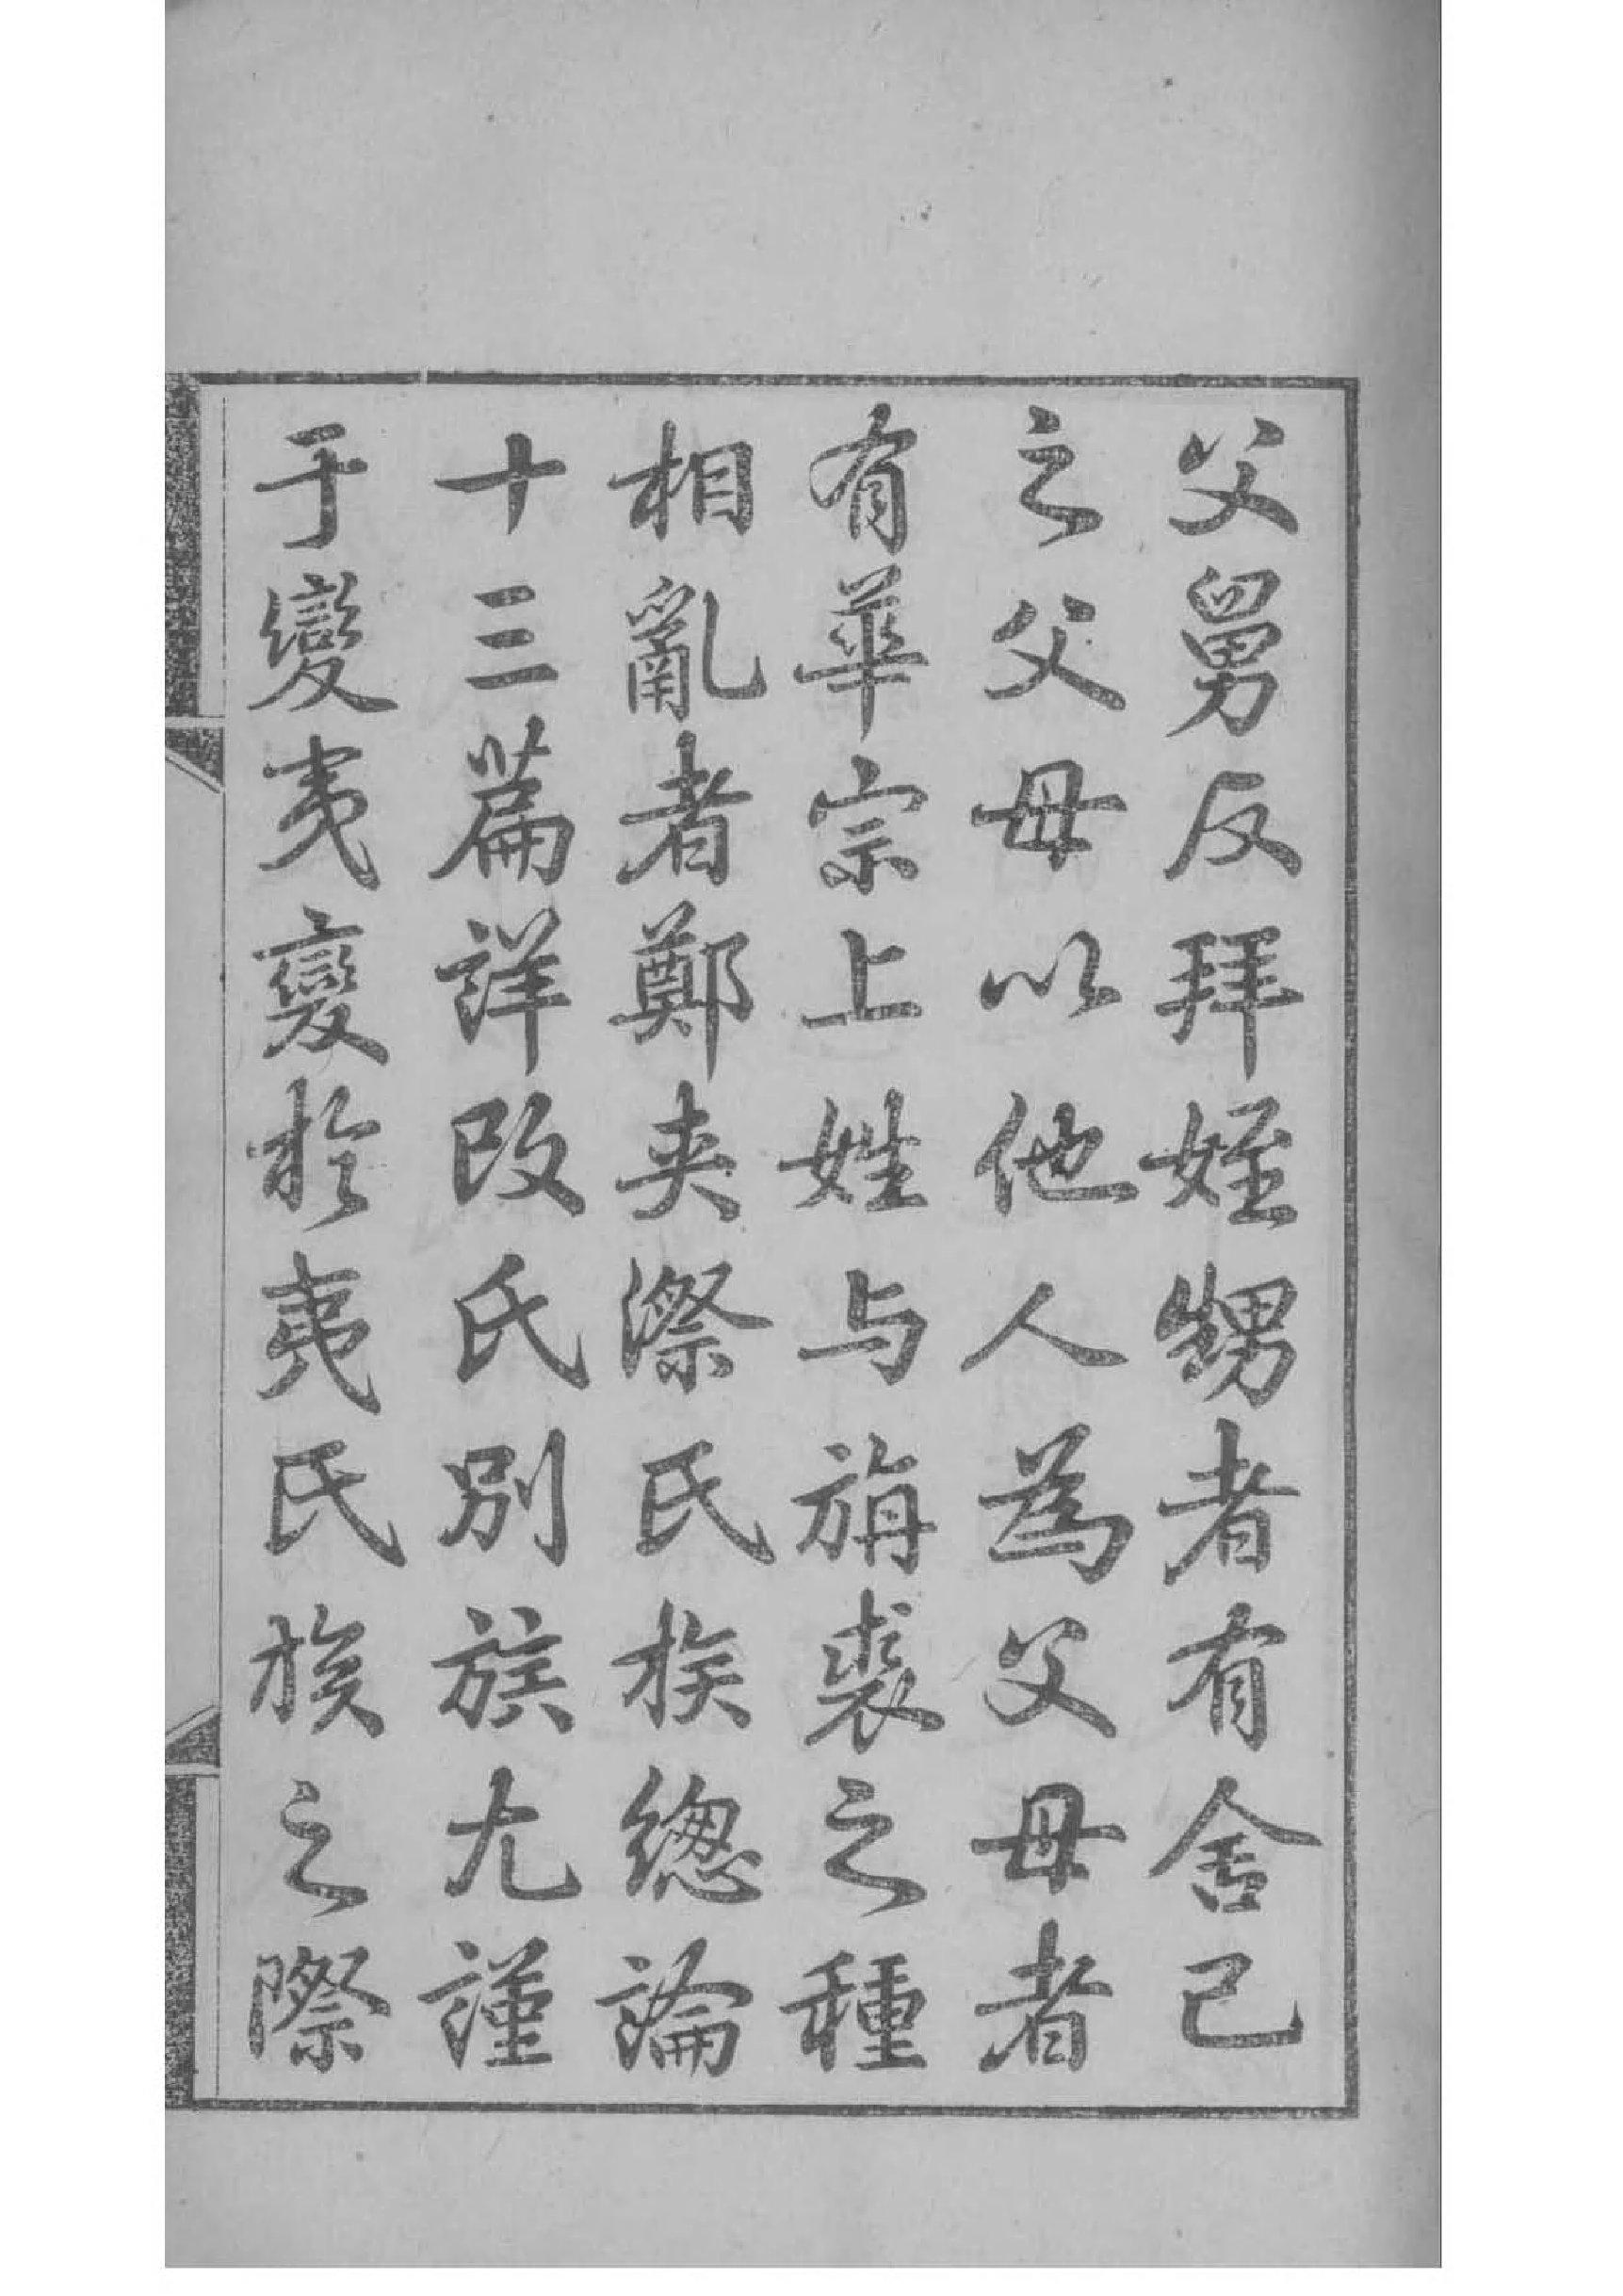 父舅反拜姪甥者有舍己
之父母以他人為父母者
有華宗上姓与旃裘之種
相亂者鄭夾漈氏族總論
十三篇詳改氏別族尤謹
于變夷變於夷氏族之際